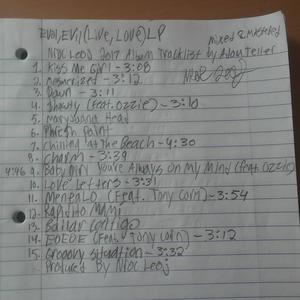 EVOL, EVIL (LIVE, LOVE) LP
Mixed & Mastered
NIDC LEOD 2017 Album Tracklist by Adam Teller
1. Kiss Me Girl - 3:08
2. Mesmerized - 3:12
3. Down - 3:11
4. Shawty (feat. Ozzie) - 3:10
5. Maryjuana Head
6. Point
7. Chilling at the Beach - 4:30
8. Charm - 3:39
4:46 9. Baby Girl You're Always on My Mind (feat. Ozzie)
10. Love Letters - 3:31
11. (Feat. Tony Corn) - 3:54
12. Rapidito Mami
13. Bailar Contigo
14. EOEOE (Feat. Tony Corn) - 3:12
15. Groovy Situation - 3:32
Produced By